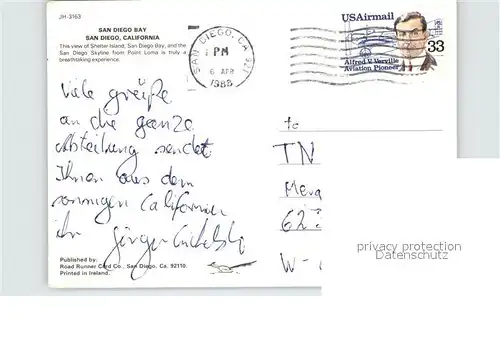 JH-3163
SAN DIEGO BAY
SAN DIEGO, CALIFORNIA
This view of Shelter Island, San Diego Bay, and the
San Diego Skyline from Point Loma is truly a
breathtaking experience.
SAN DIEGO, CA 921
PM
6 APR
1985
USAirmail
33
Alfred V. Verville
Aviation Pioneer
Viele grüße
an die ganze
Abteilung sendet
Ihnen aus dem
sonnigen Californien
ihr Jürgen
to
TN
62
W-
privacy protection
Datenschutz
Published by:
Road Runner Card Co., San Diego, Ca. 92110.
Printed in Ireland.